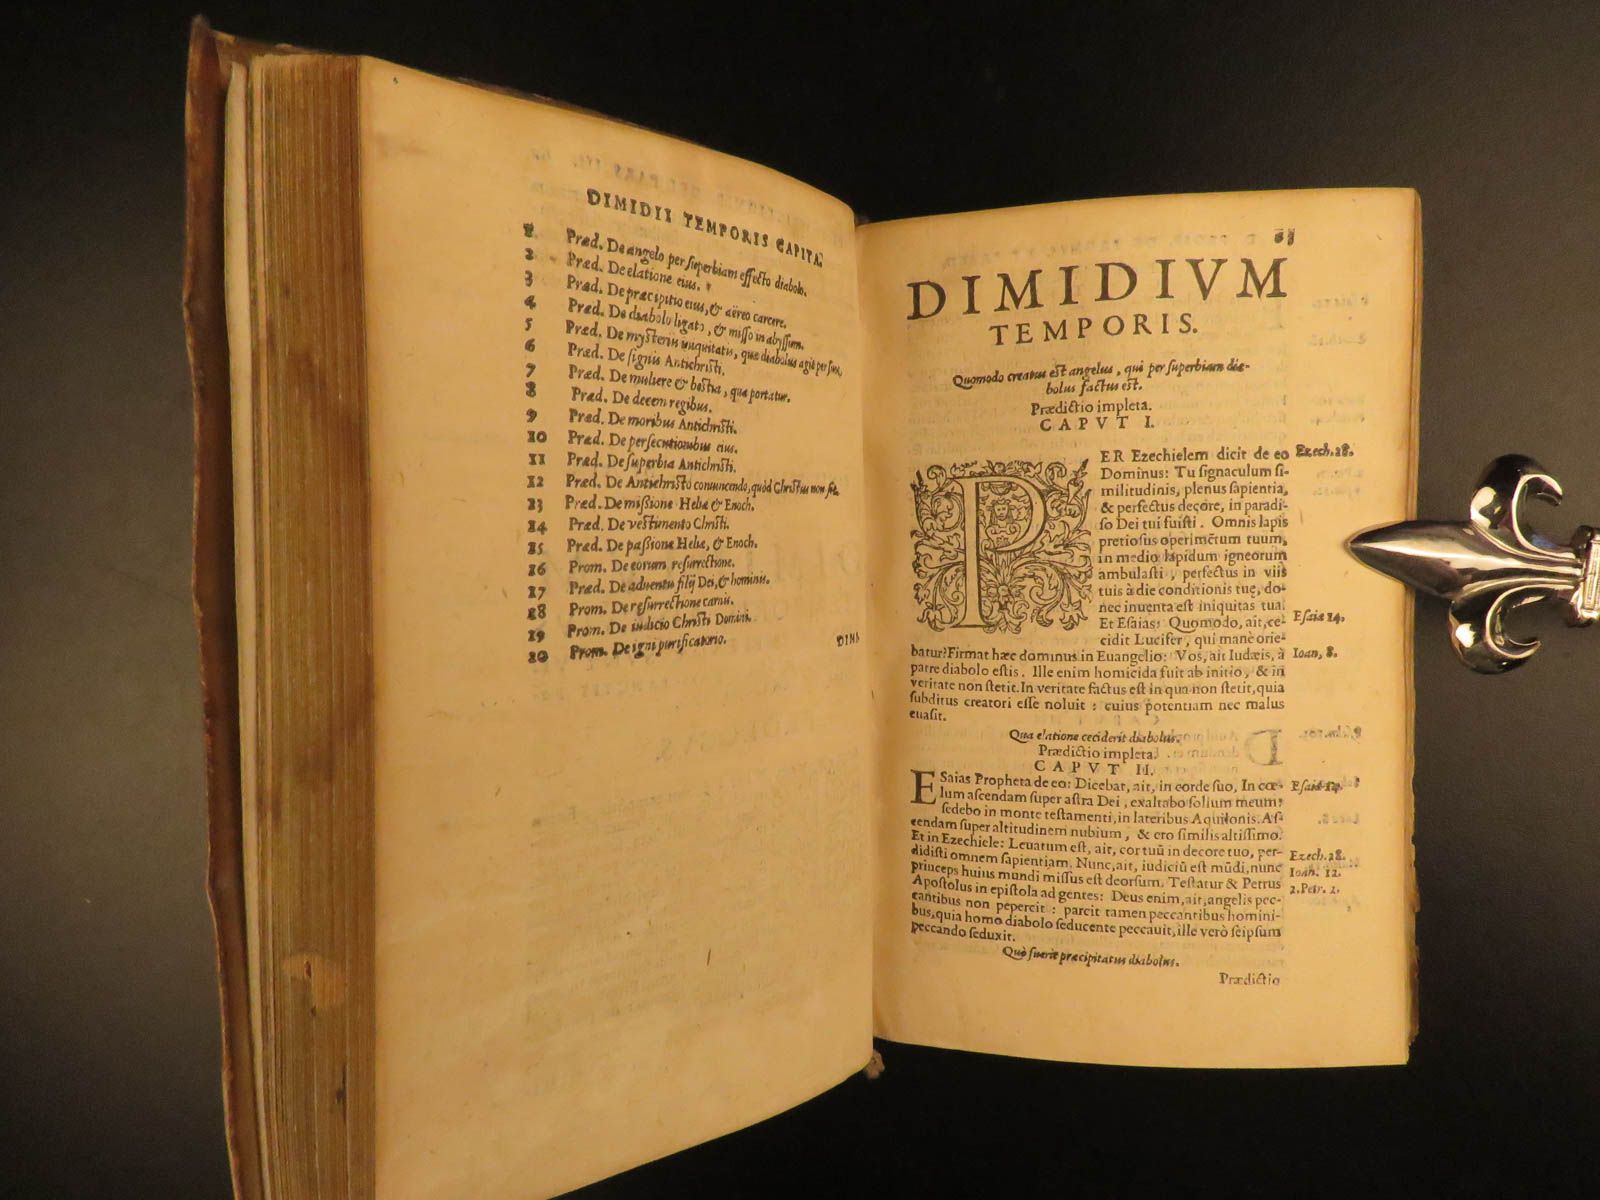 DIMIDII TEMPORIS CAPITA.
1 Præd. De angelo per superbiam effecto diabolo.
2 Præd. De elatione eius.
3 Præd. De præcipitio eius, & aëreo carcere.
4 Præd. De diabolo ligato, & misso in abyssum.
5 Præd. De mysteriis iniquitatis, quæ diabolus agit per suos.
6 Præd. De signis Antichristi.
7 Præd. De muliere & bestia, qua portatur.
8 Præd. De decem regibus.
9 Præd. De moribus Antichristi.
10 Præd. De persecutionibus eius.
11 Præd. De superbia Antichristi.
12 Præd. De Antichristo conuincendo, quòd Christus non sit.
13 Præd. De missione Heliæ & Enoch.
14 Præd. De vestimento Christi.
15 Præd. De passione Heliæ, & Enoch.
16 Prom. De eorum resurrectione.
17 Præd. De aduentu filij Dei, & hominis.
18 Prom. De resurrectione carnis.
19 Prom. De iudicio Christi Domini.
20 Prom. De igni purificatorio.
DIMI-
DIMIDIVM
TEMPORIS.
Quomodo creatus est angelus, qui per superbiam dia-
bolus factus est.
Prædictio impleta.
CAPVT I.
PER Ezechielem dicit de eo Ezech. 28.
Dominus: Tu signaculum si-
militudinis, plenus sapientia,
& perfectus decore, in paradi-
so Dei tui fuisti. Omnis lapis
pretiosus operimẽtum tuum,
in medio lapidum igneorum
ambulasti, perfectus in viis
tuis à die conditionis tuę, do-
nec inuenta est iniquitas tua.
Et Esaias: Quomodo, ait, ce- Esaiæ 14.
cidit Lucifer, qui manè orie-
batur? Firmat hæc dominus in Euangelio: Vos, ait Iudæis, à Ioan, 8.
patre diabolo estis. Ille enim homicida fuit ab initio, & in
veritate non stetit. In veritate factus est in qua non stetit, quia
subditus creatori esse noluit: cuius potentiam nec malus
euasit.
Qua elatione ceciderit diabolus.
Prædictio impleta.
CAPVT II.
ESaias Propheta de eo: Dicebat, ait, in corde suo, In cœ- Esaiæ 14.
lum ascendam super astra Dei, exaltabo solium meum;
sedebo in monte testamenti, in lateribus Aquilonis. As-
cendam super altitudinem nubium, & ero similis altissimo.
Et in Ezechiele: Leuatum est, ait, cor tuũ in decore tuo, per- Ezech. 28.
didisti omnem sapientiam. Nunc, ait, iudiciũ est mũdi, nunc Ioan. 12.
princeps huius mundi missus est deorsum. Testatur & Petrus 2. Petr. 2.
Apostolus in epistola ad gentes: Deus enim, ait, angelis pec-
cantibus non pepercit: parcit tamen peccantibus homini-
bus, quia homo diabolo seducente peccauit, ille verò seipsum
peccando seduxit.
Quò fuerit præcipitatus diabolus.
Prædictio